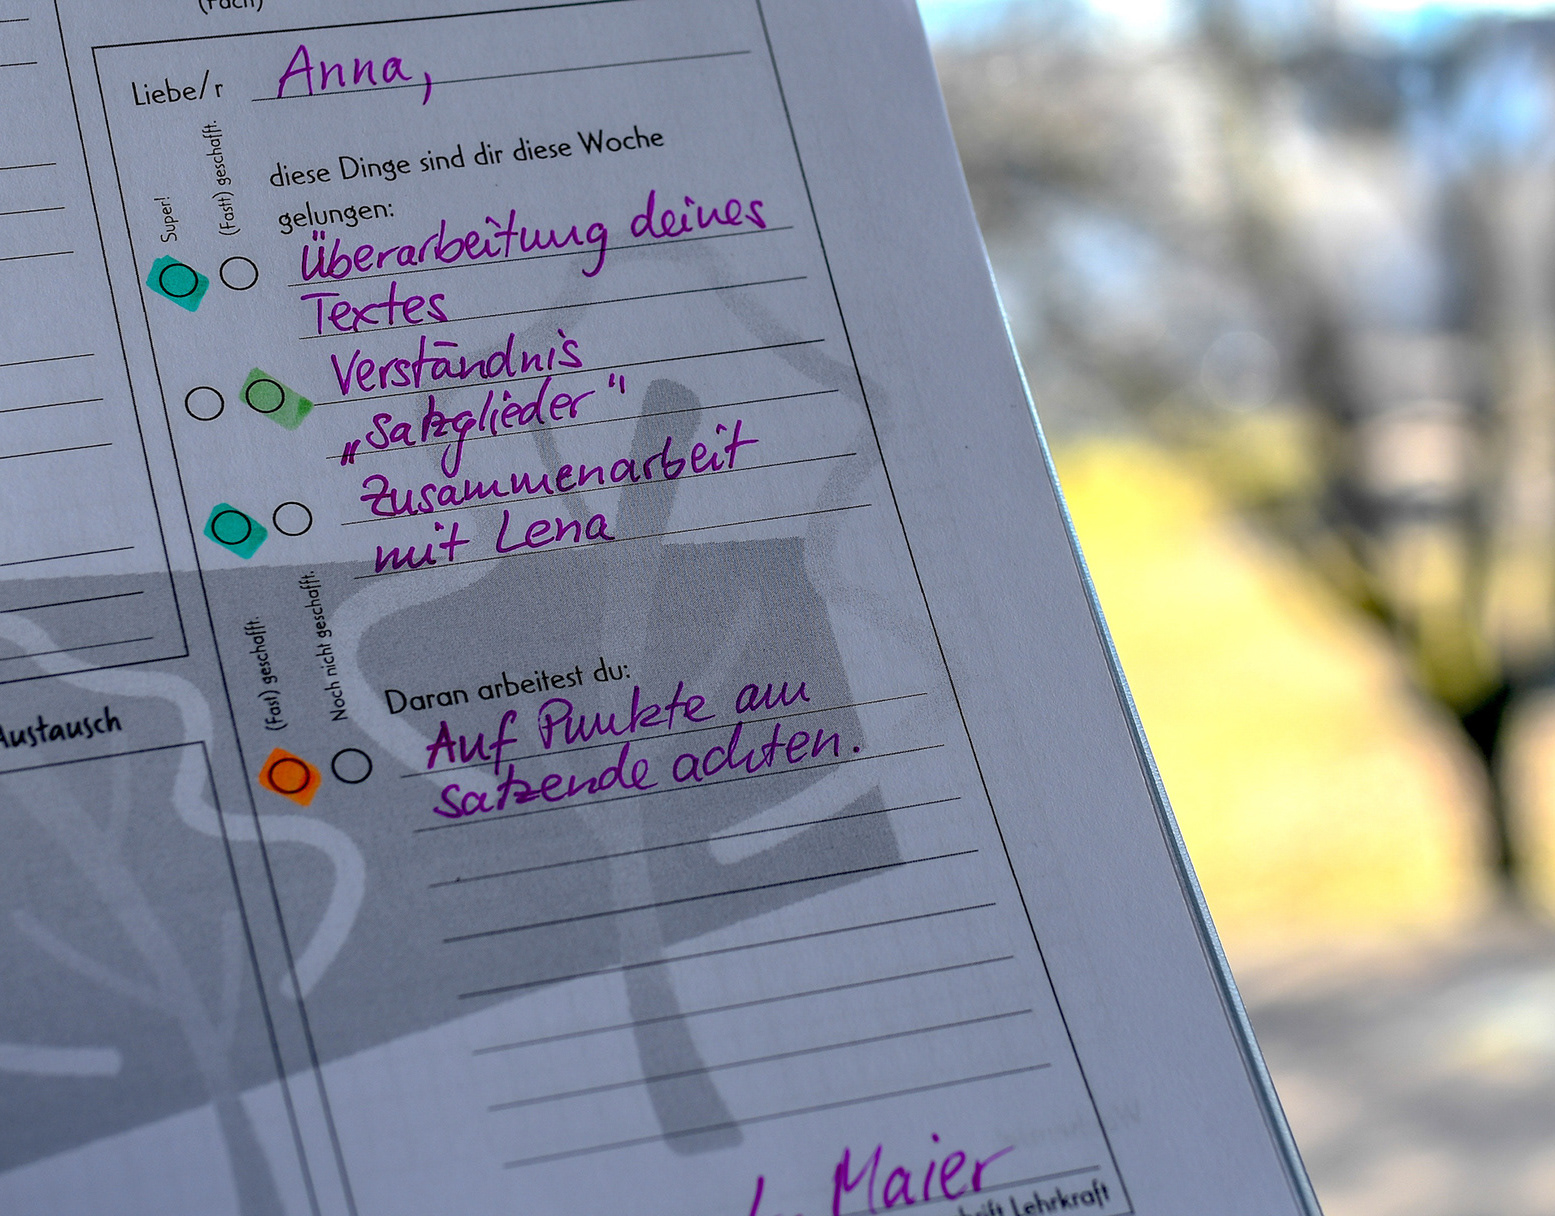 (Fach)
Liebe/r Anna,
Super!
(Fast) geschafft.
diese Dinge sind dir diese Woche
gelungen:
Überarbeitung deines
Textes
Verständnis
„Satzglieder"
Zusammenarbeit
mit Lena
(Fast) geschafft.
Noch nicht geschafft.
Daran arbeitest du:
Auf Punkte am
Satzende achten.
Austausch
Maier
Lehrkraft